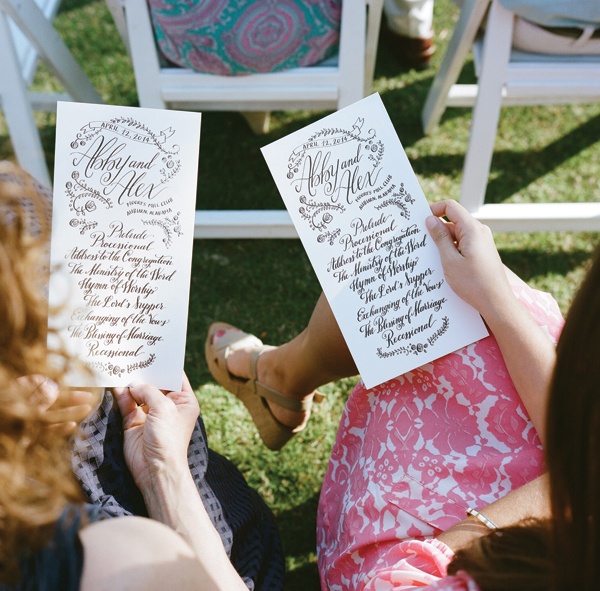 APRIL 12, 2014
Abby and
Alex
MOORE'S MILL CLUB
AUBURN, ALABAMA
Prelude
Processional
Address to the Congregation
The Ministry of the Word
Hymn of Worship
The Lord's Supper
Exchanging of the Vows
The Blessing of Marriage
Recessional
APRIL 12, 2014
Abby and
Alex
MOORE'S MILL CLUB
AUBURN, ALABAMA
Prelude
Processional
Address to the Congregation
The Ministry of the Word
Hymn of Worship
The Lord's Supper
Exchanging of the Vows
The Blessing of Marriage
Recessional